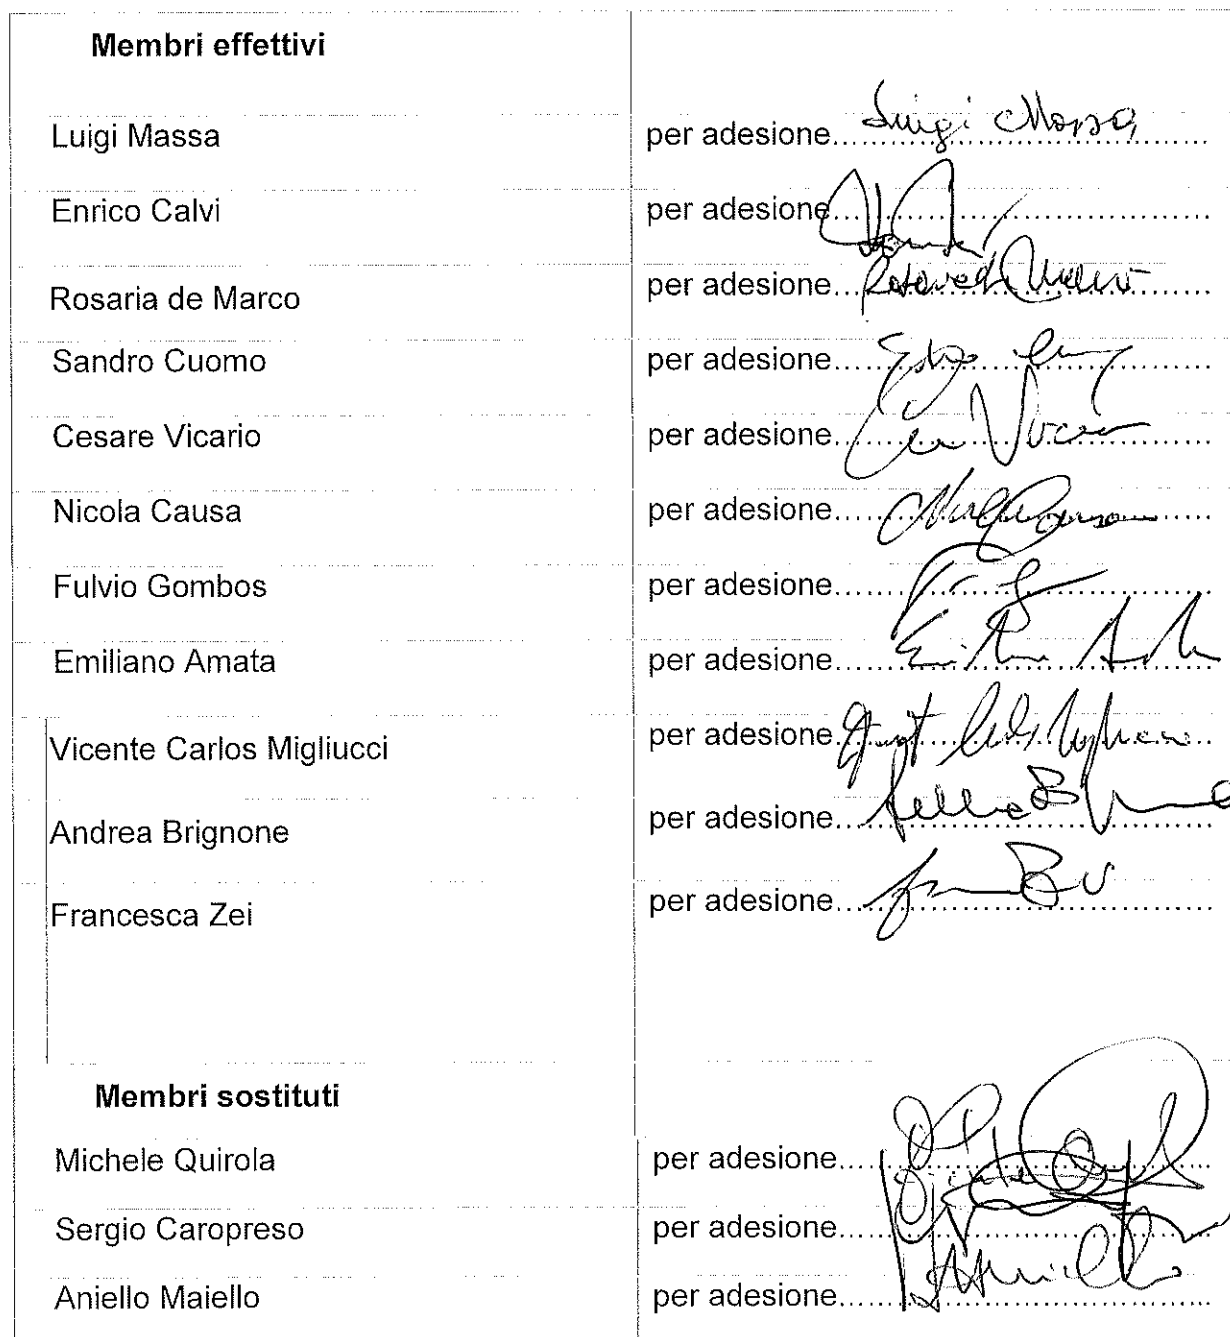 Membri effettivi
Luigi Massa per adesione........ Luigi Massa
Enrico Calvi per adesione........
Rosaria de Marco per adesione........
Sandro Cuomo per adesione........
Cesare Vicario per adesione........
Nicola Causa per adesione........
Fulvio Gombos per adesione........
Emiliano Amata per adesione........
Vicente Carlos Migliucci per adesione........
Andrea Brignone per adesione........
Francesca Zei per adesione........
Membri sostituti
Michele Quirola per adesione........
Sergio Caropreso per adesione........
Aniello Maiello per adesione........